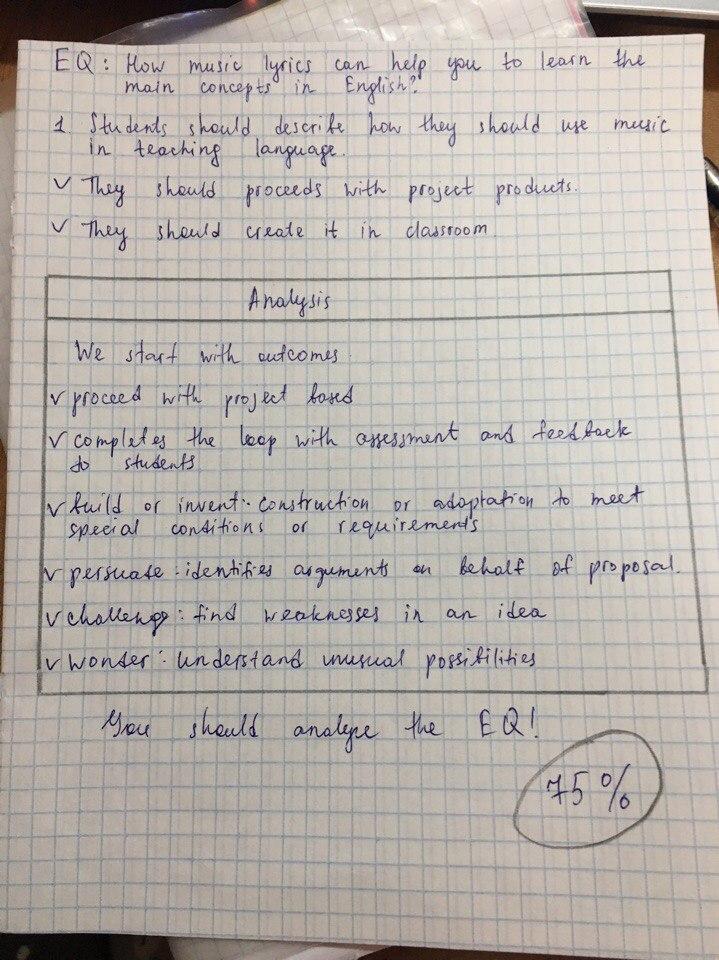 EQ: How music lyrics can help you to learn the
main concepts in English?
1 Students should describe how they should use music
in teaching language.
✓ They should proceeds with project products.
✓ They should create it in classroom.
Analysis
We start with outcomes.
✓ proceed with project based
✓ completes the loop with assessment and feedback
to students
✓ build or invent: construction or adaptation to meet
special conditions or requirements
✓ persuate: identifies arguments on behalf of proposal.
✓ challenge: find weaknesses in an idea
✓ wonder: understand unusual possibilities
You should analyze the EQ!
75%